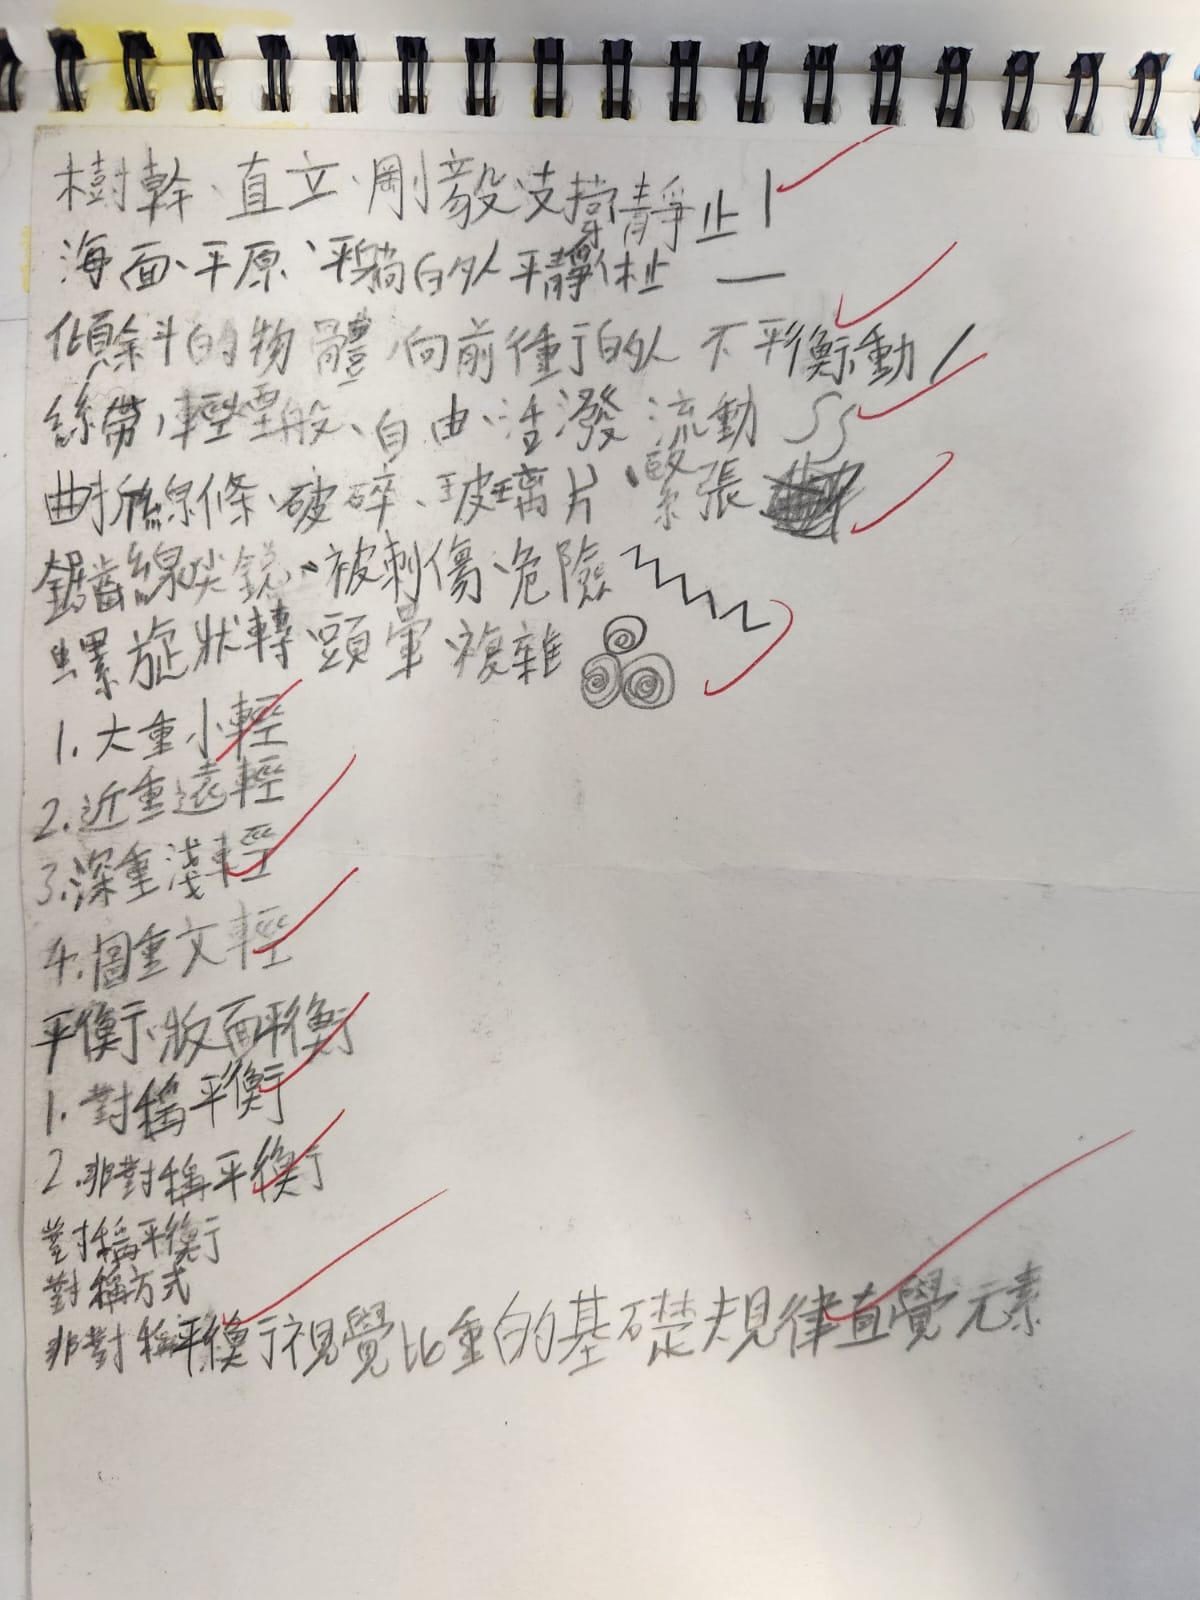 樹幹、直立、剛毅支撐靜止
海面、平原、平躺的人平靜休止
傾斜的物體,向前衝的人 不平衡動
絲帶,輕煙般、自由、活潑 流動
曲折線條、破碎、玻璃片、緊張
鋸齒線尖銳、被刺傷、危險
螺旋狀轉 頭暈、複雜
1. 大重小輕
2. 近重遠輕
3. 深重淺輕
4. 圖重文輕
平衡、版面平衡
1. 對稱平衡
2. 非對稱平衡
對稱平衡
對稱方式
非對稱平衡視覺比重的基礎規律直覺元素